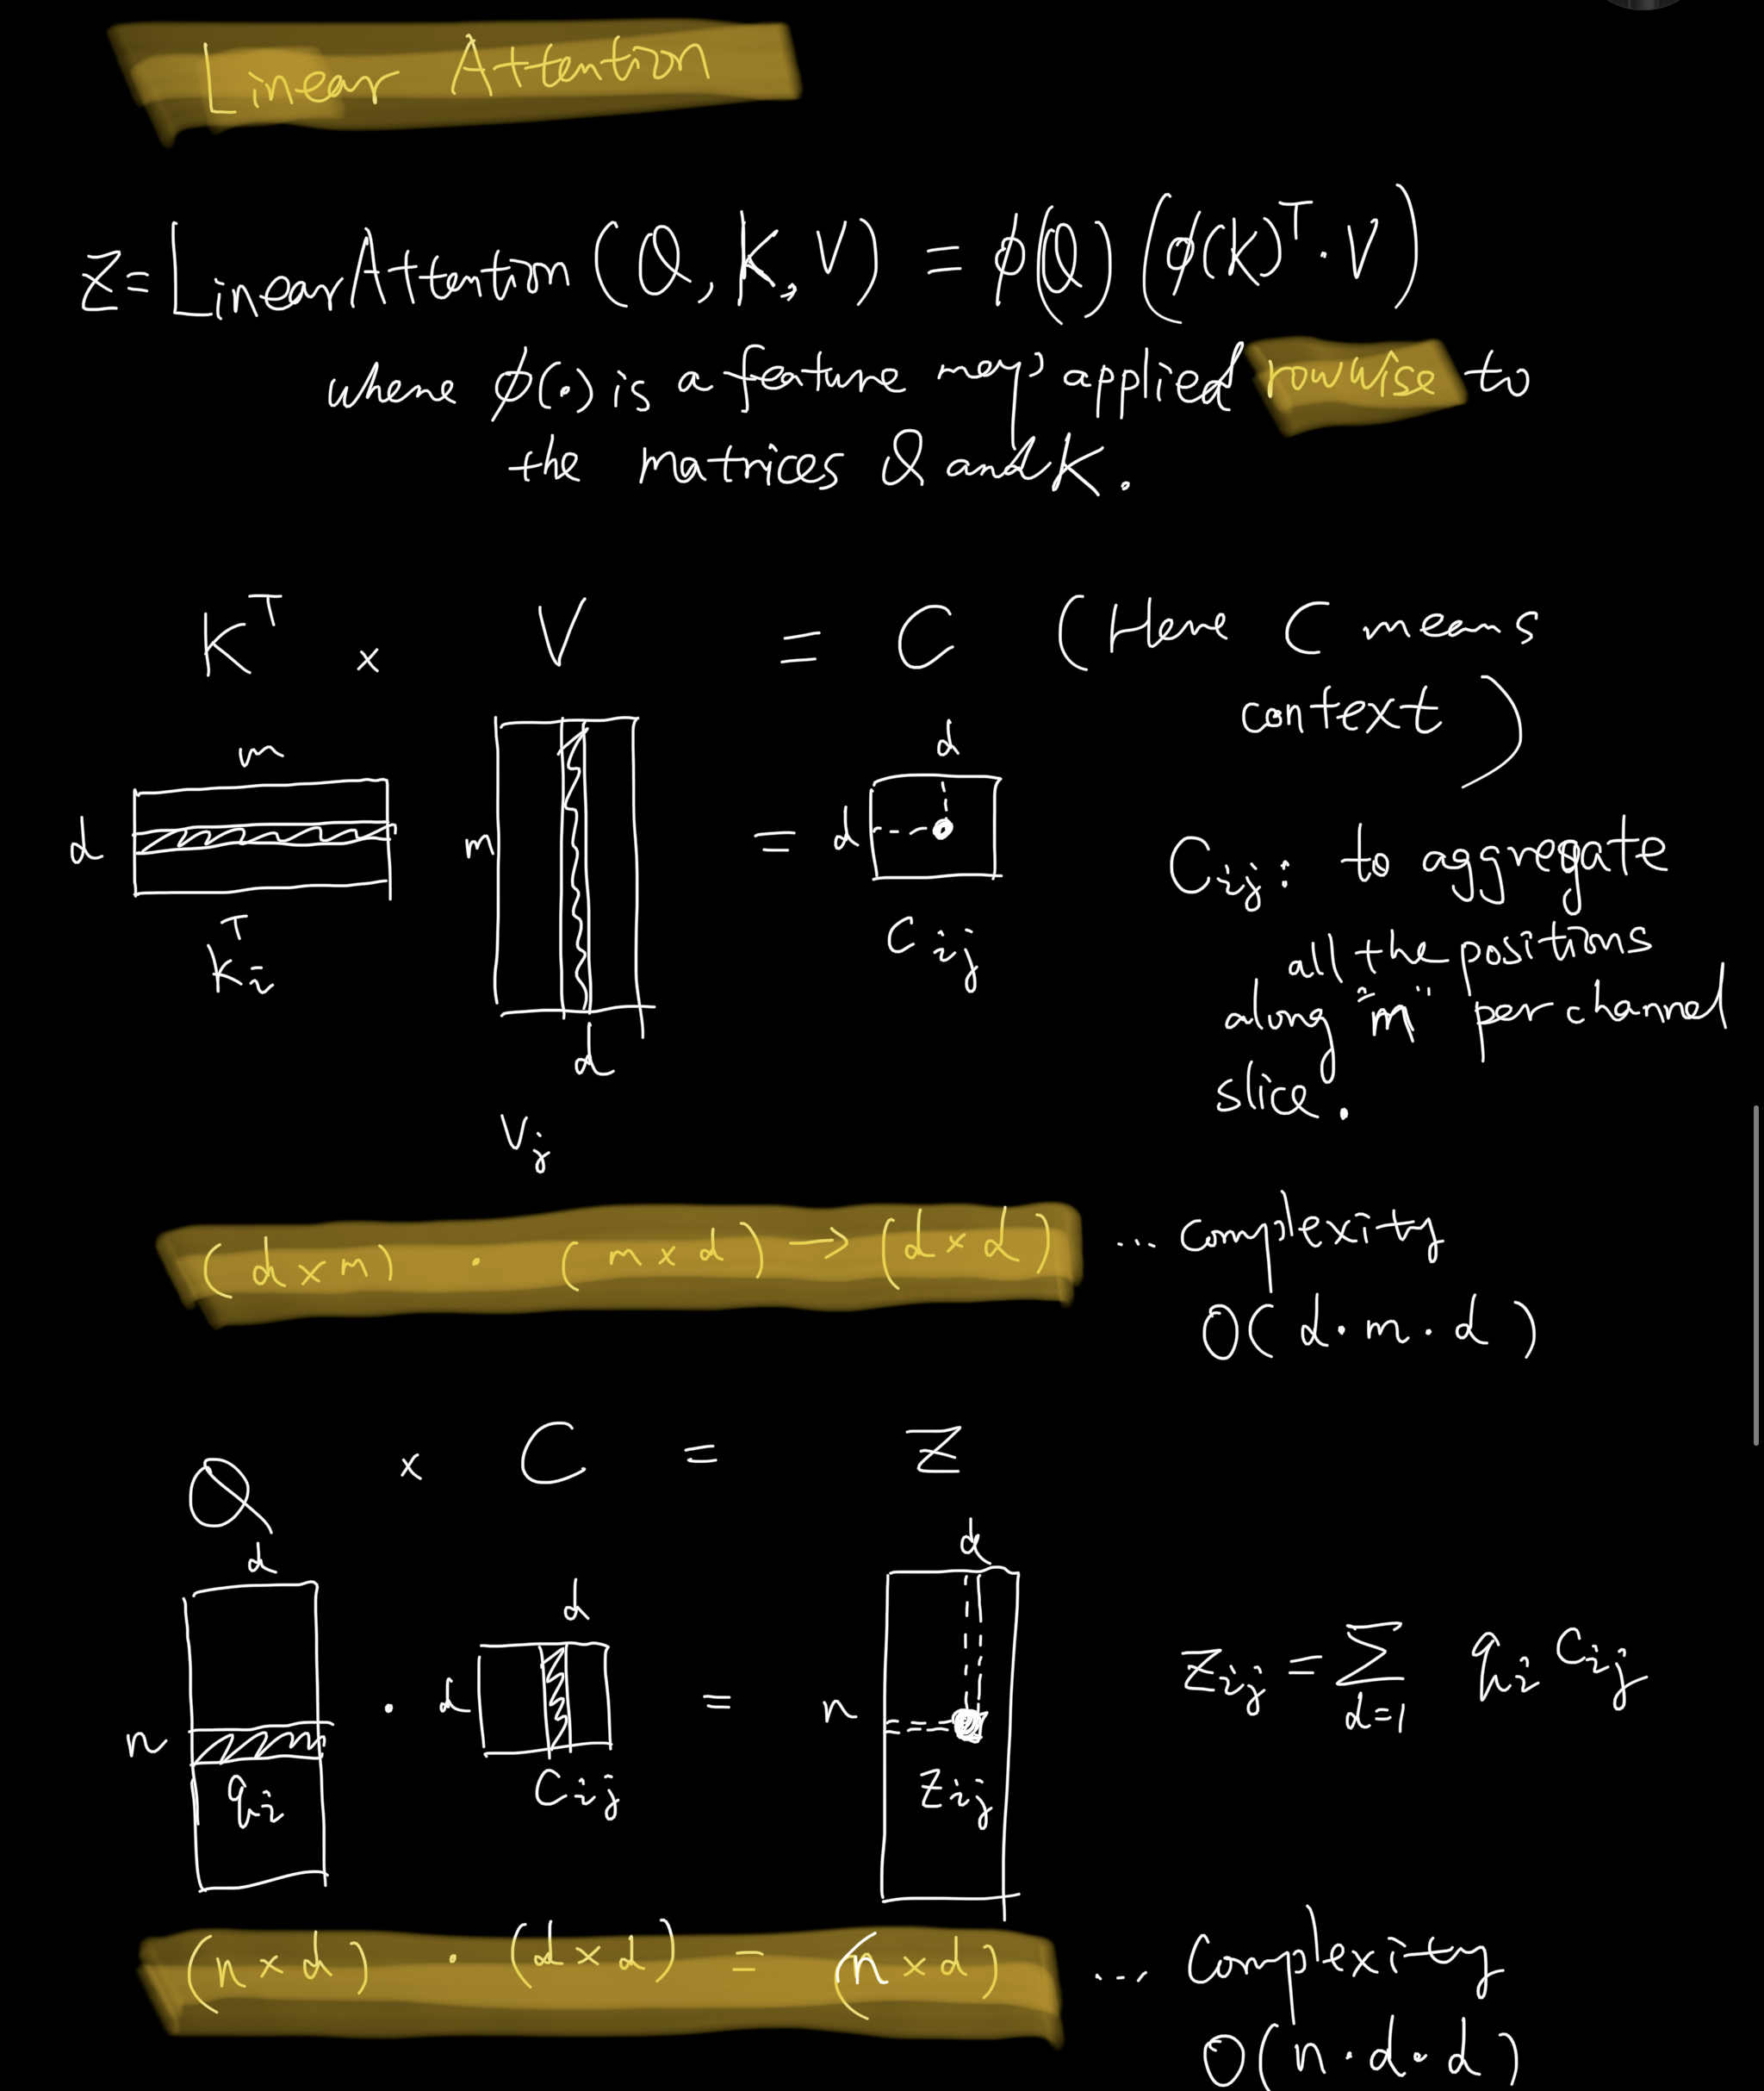 Linear Attention
Z = LinearAttention (Q, K, V) = ϕ(Q) (ϕ(K)ᵀ · V)
where ϕ(·) is a feature map applied rowwise to
the matrices Q and K.
Kᵀ × V = C (Here C means
context)
m
d
m
d
= d
Kᵢᵀ
d
Cᵢⱼ
Vⱼ
Cᵢⱼ: to aggregate
all the positions
along "m" per channel
slice.
(d × m) · (m × d) → (d × d) ... complexity
O(d · m · d)
Q × C = Z
d
d
d
n
qᵢ
· d
Cᵢⱼ
= n
Zᵢⱼ
Zᵢⱼ = Σ qᵢ Cᵢⱼ
d=1
(n × d) · (d × d) = (n × d) ... Complexity
O(n · d · d)